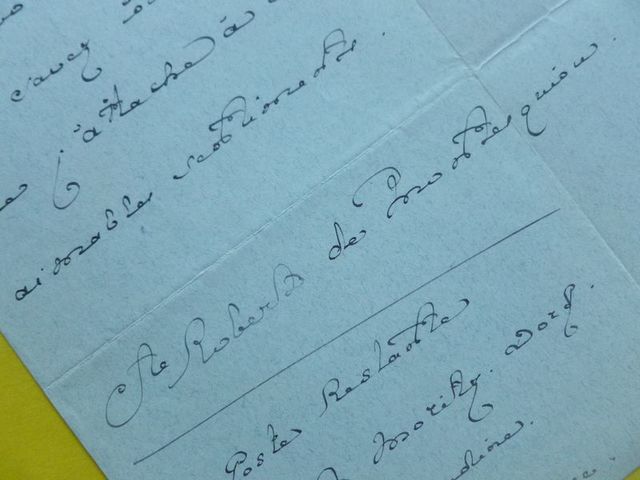 savez
j'attache à
aimables sentiments.
Cte Robert de Montesquiou.
Poste Restante
Moritz. Dorf.